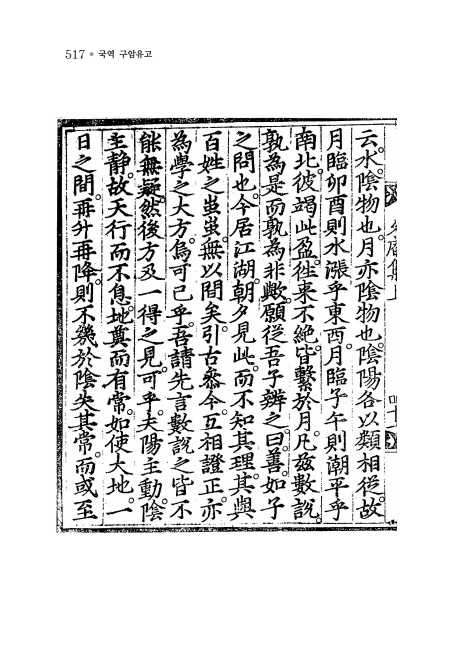 517 ● 국역 구암유고
云水。陰物也。月亦陰物也。陰陽各以類相從。故
月臨卯酉則水漲乎東西。月臨子午則潮平乎
南北。彼竭此盈。徃來不絶。皆繫於月。凡玆數說。
孰為是而孰為非歟。願從吾子辨之。曰。善。如子
之問也。今居江湖。朝夕見此。而不知其理。其與
百姓之蚩蚩。無以間矣。引古叅今。互相證正。亦
為學之大方。烏可已乎。吾請先言數說之皆不
能無疑。然後方及一得之見。可乎。夫陽主動。陰
主静。故天行而不息。地奠而有常。如使大地。一
日之間。再升再降。則不幾於陰失其常。而或至